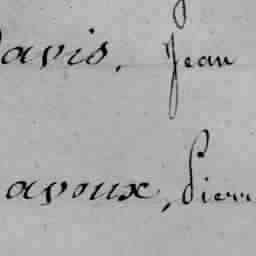 Davis, Jean
avoux, Pierr